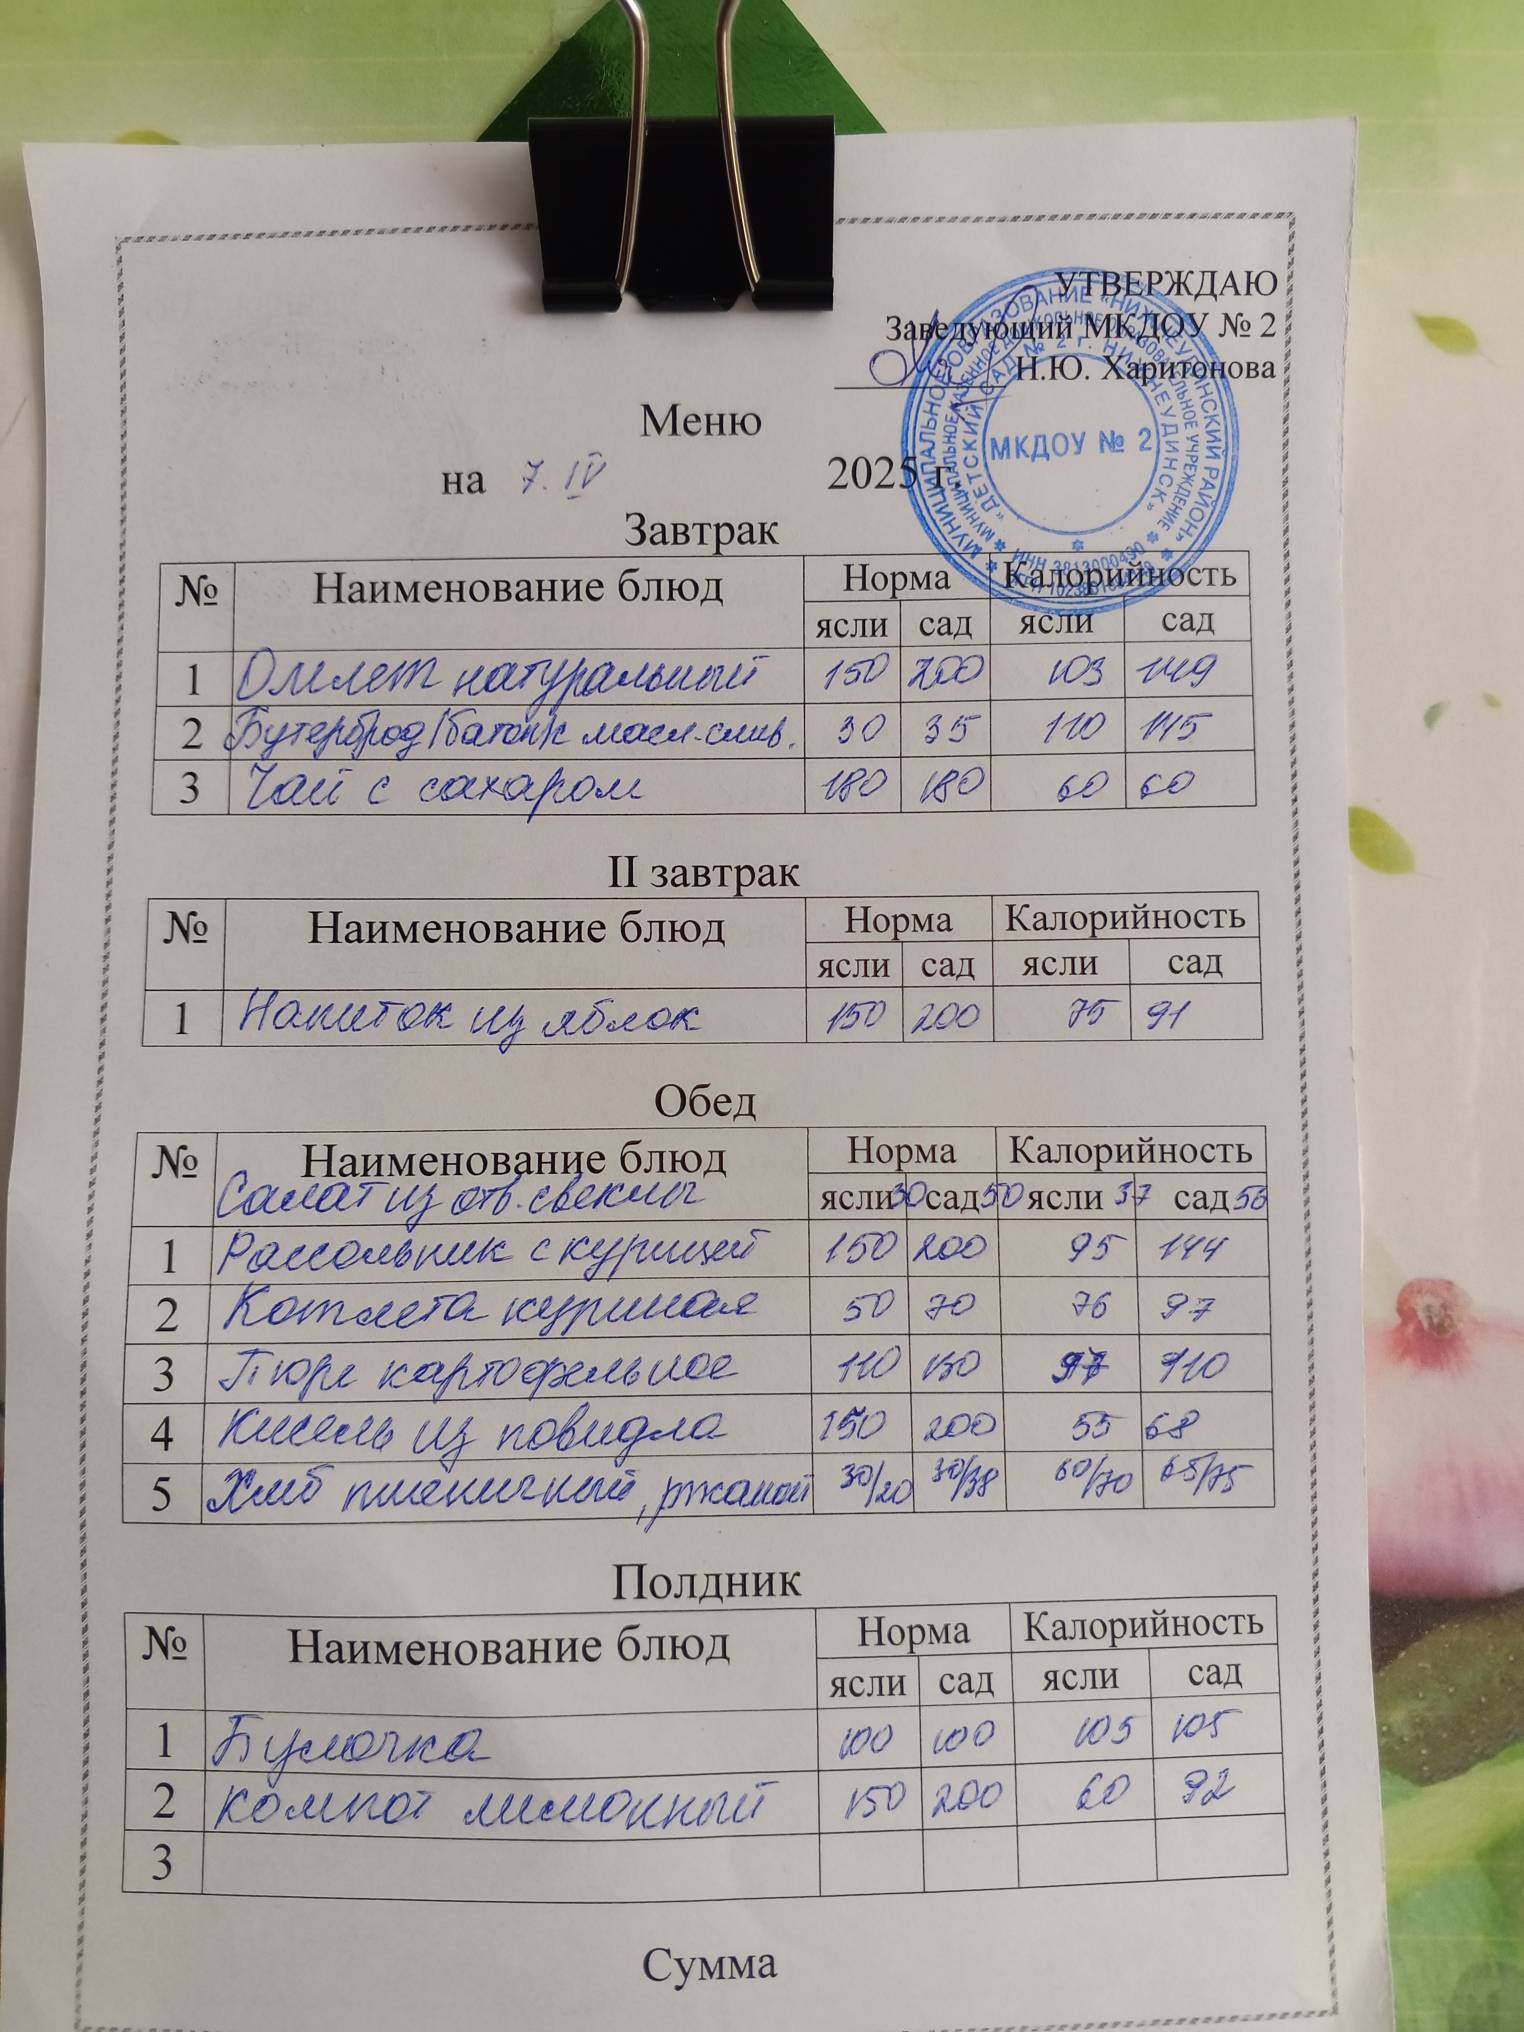 УТВЕРЖДАЮ
Заведующий МКДОУ № 2
Н.Ю. Харитонова
МУНИЦИПАЛЬНОЕ ОБРАЗОВАНИЕ «НИЖНЕУДИНСКИЙ РАЙОН»
МУНИЦИПАЛЬНОЕ КАЗЕННОЕ ДОШКОЛЬНОЕ ОБРАЗОВАТЕЛЬНОЕ УЧРЕЖДЕНИЕ
«ДЕТСКИЙ САД № 2 Г. НИЖНЕУДИНСК»
ИНН 3813000490
МКДОУ № 2
Меню
на 7. IV 2025 г.
Завтрак
№ Наименование блюд Норма Калорийность
ясли сад ясли сад
1 Омлет натуральный 150 200 103 149
2 Бутерброд (батон) с масл. слив. 30 35 110 145
3 Чай с сахаром 180 180 60 60
II завтрак
№ Наименование блюд Норма Калорийность
ясли сад ясли сад
1 Напиток из яблок 150 200 75 91
Обед
№ Наименование блюд Норма Калорийность
ясли сад ясли сад
Салат из отв. свеклы 30 50 37 56
1 Рассольник с курицей 150 200 95 144
2 Котлета куриная 50 70 76 97
3 Пюре картофельное 110 130 97 110
4 Кисель из повидла 150 200 55 68
5 Хлеб пшеничный, ржаной 30/20 30/38 60/70 65/75
Полдник
№ Наименование блюд Норма Калорийность
ясли сад ясли сад
1 Булочка 100 100 105 105
2 Компот лимонный 150 200 60 92
3
Сумма